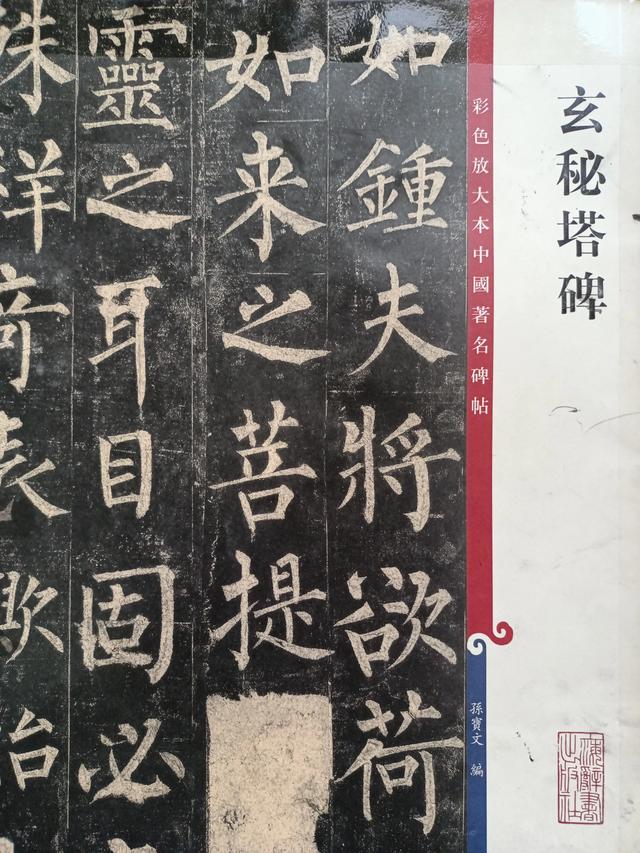 玄秘塔碑
彩色放大本中國著名碑帖
孫寶文 編
上海辭書出版社
如鍾夫將欲荷
如来之菩提
靈之耳目固必
殊祥奇表歟始